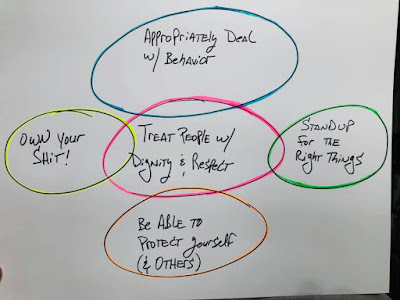 Appropriately Deal
w/ Behavior
OWN YOUR
SHiT!
TREAT PEOPLE w/
Dignity & Respect
STAND UP
For the
Right Things
Be ABLE TO
Protect yourself
(& OTHERS)